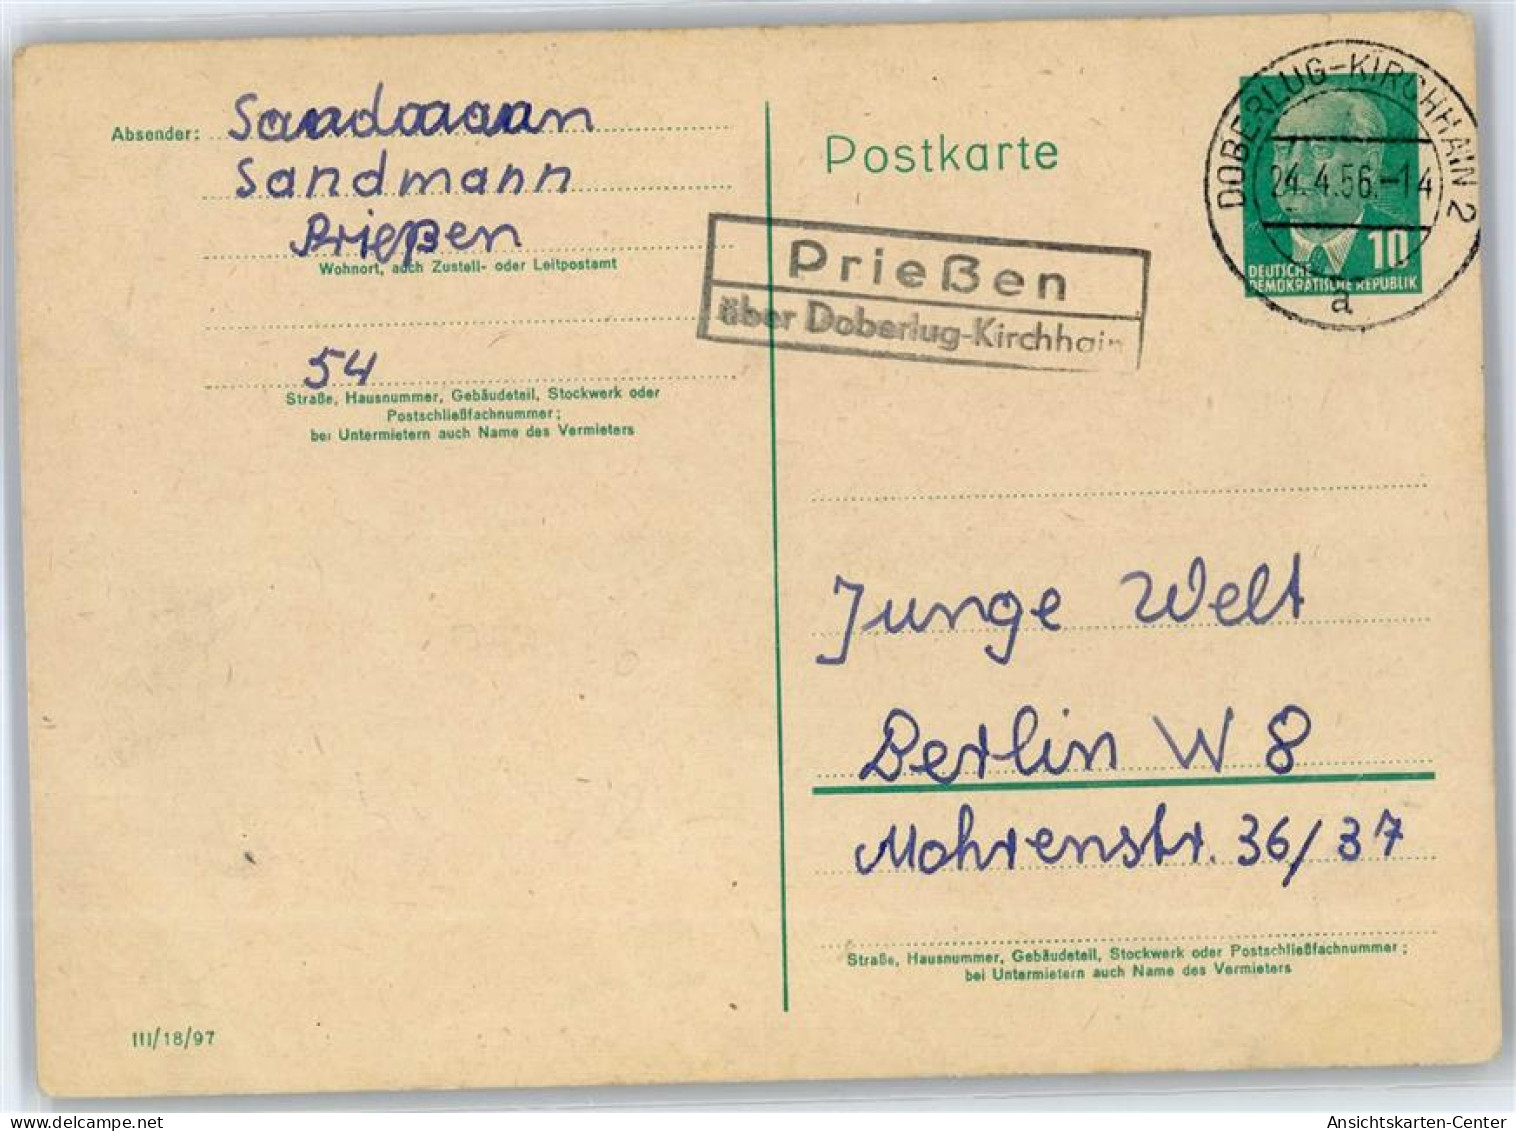 Absender: Sandmann
Sandmann
Prießen
Wohnort, auch Zustell- oder Leitpostamt
54
Straße, Hausnummer, Gebäudeteil, Stockwerk oder
Postschließfachnummer;
bei Untermietern auch Name des Vermieters
III/18/97
Postkarte
DOBERLUG-KIRCHHAIN 2
24.4.56.-14
a
10
DEUTSCHE
DEMOKRATISCHE REPUBLIK
Prießen
über Doberlug-Kirchhain
Junge Welt
Berlin W 8
Mohrenstr. 36/37
Straße, Hausnummer, Gebäudeteil, Stockwerk oder Postschließfachnummer;
bei Untermietern auch Name des Vermieters
delcampe.net
Ansichtskarten-Center